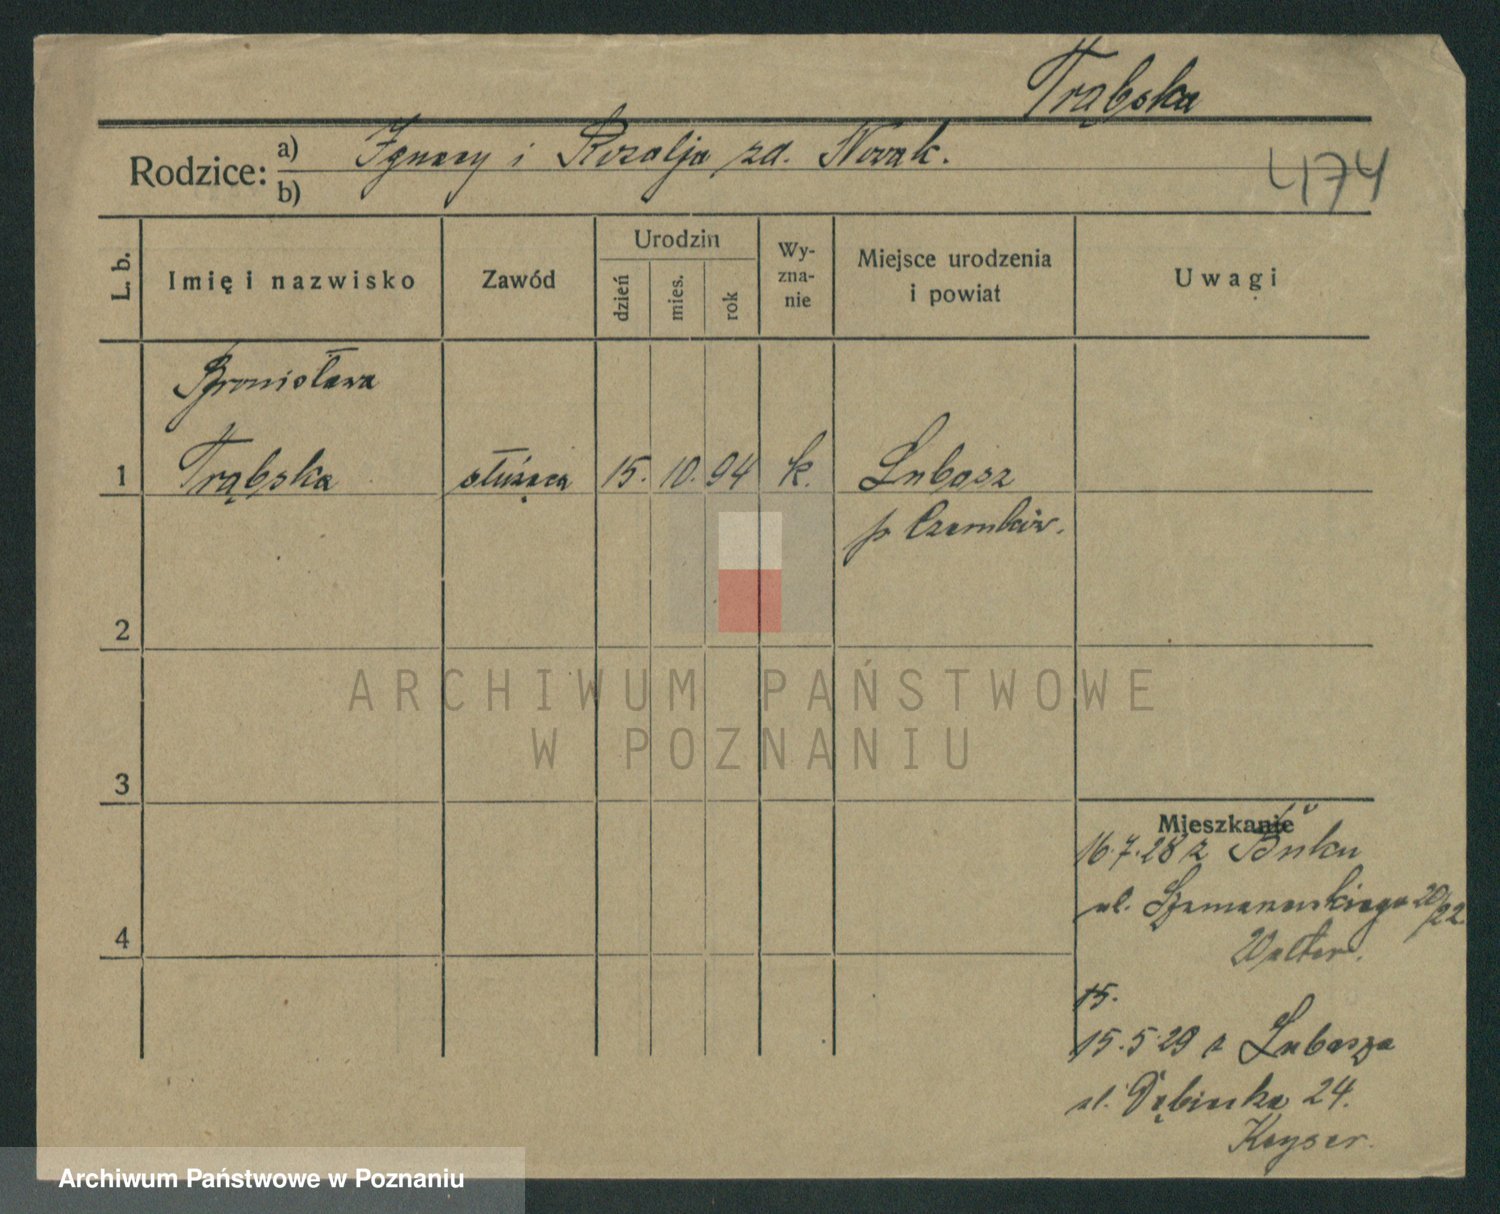 Trąbska
Rodzice: a) Ignacy i Rozalja zd. Nowak.
b)
474
L. b.
Imię i nazwisko
Zawód
Urodzin
dzień
mies.
rok
Wy-
zna-
nie
Miejsce urodzenia
i powiat
Uwagi
Bronisława
1 Trąbska służąca 15. 10. 94 k. Lubasz
p. Czarnków.
2
ARCHIWUM PAŃSTWOWE
W POZNANIU
3
Mieszkanie
16.7.28 z Buku
ul. Szamarzewskiego 20/22
4
Walter.
15.
15.5.29 z Lubasza
ul. Dębinka 24.
Keyser.
Archiwum Państwowe w Poznaniu